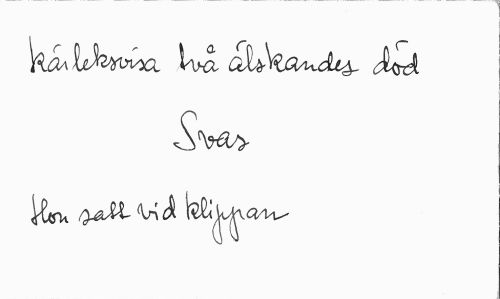 Kärleksvisa två älskandes död
Svas
Hon satt vid klippan